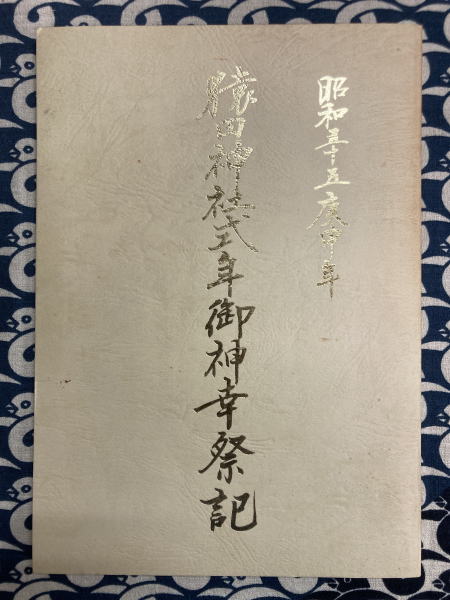 昭和五十五庚申年
猿田神社式年御神幸祭記